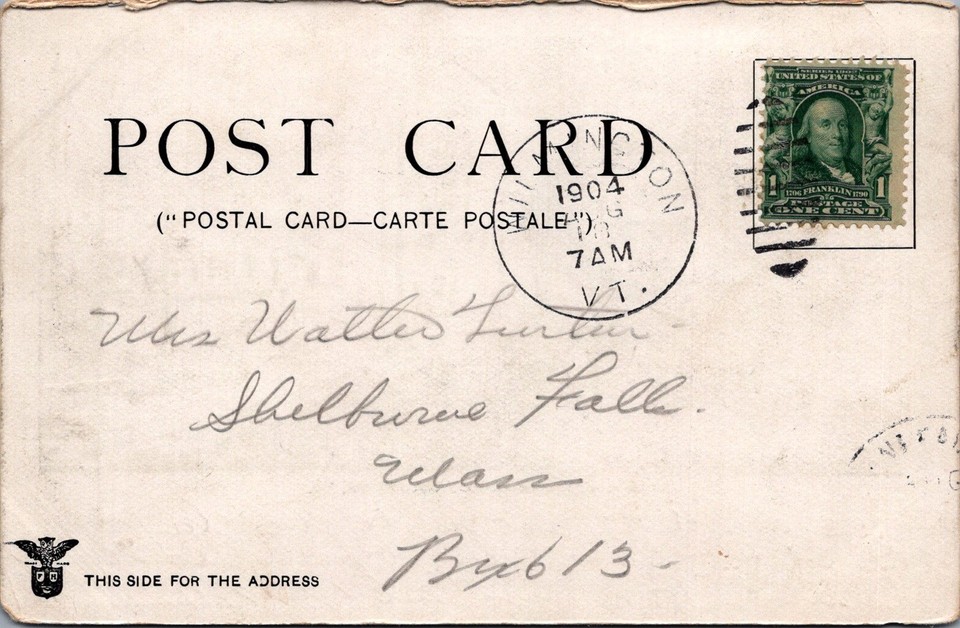 SERIES 1902
UNITED STATES OF
AMERICA
1 1706 FRANKLIN 1790 1
POSTAGE
ONE CENT
POST CARD
("POSTAL CARD—CARTE POSTALE")
WILMINGTON
1904
AUG
18
7AM
VT.
Mrs Walter
Shelburne Falls.
Mass
Bx 613-
TRADE MARK
F H
THIS SIDE FOR THE ADDRESS